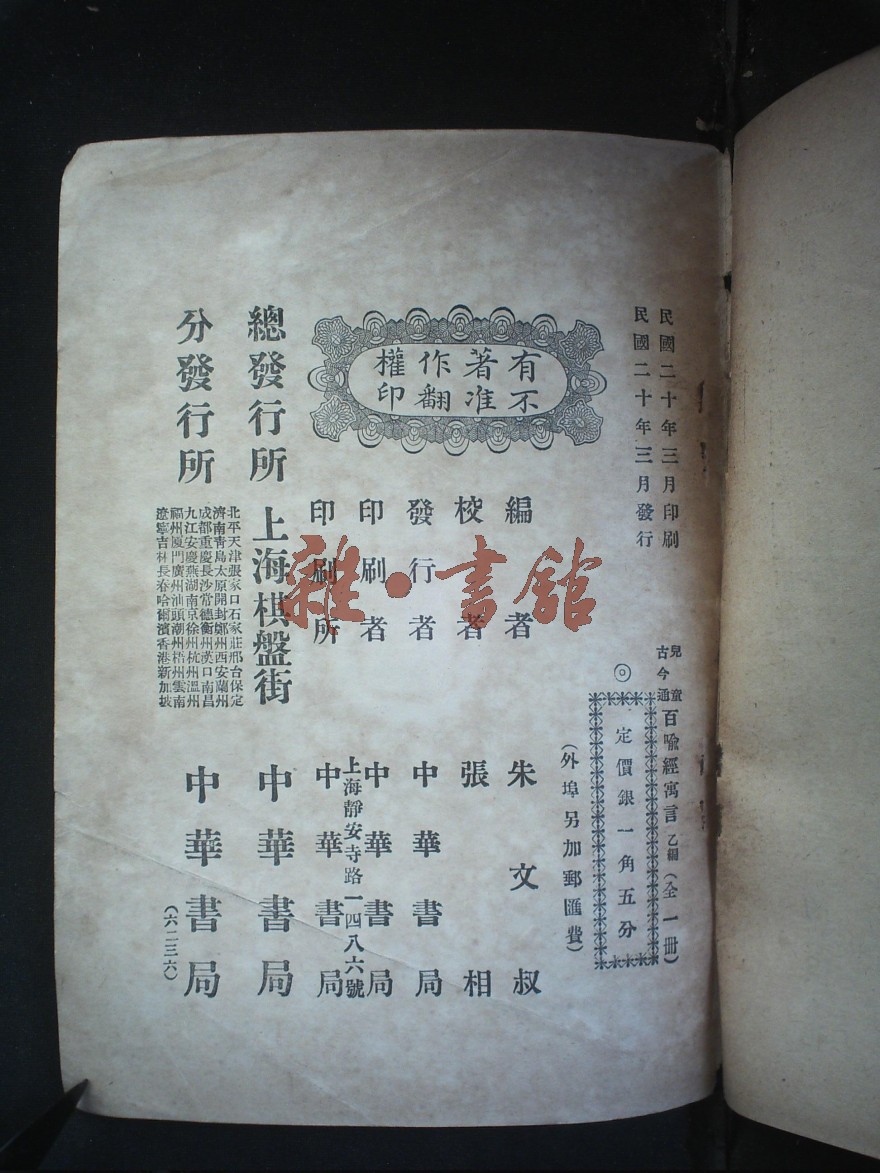 民國二十年三月印刷
民國二十年三月發行
兒童
古今通
百喻經寓言 乙編（全一冊）
◎
定價銀一角五分
（外埠另加郵匯費）
有著作權
不准翻印
編者 朱文叔
校者 張相
發行者 中華書局
印刷者 中華書局
上海靜安寺路一四八六號
印刷所 中華書局
總發行所 上海棋盤街 中華書局
分發行所
北平天津張家口石家莊邢台保定
濟南青島太原開封鄭州西安蘭州
成都重慶長沙常德衡州漢口南昌
九江安慶蕪湖南京徐州杭州溫州
福州廈門廣州汕頭潮州梧州雲南
遼寧吉林長春哈爾濱香港新加坡
中華書局
（六二三六）
雜·書館